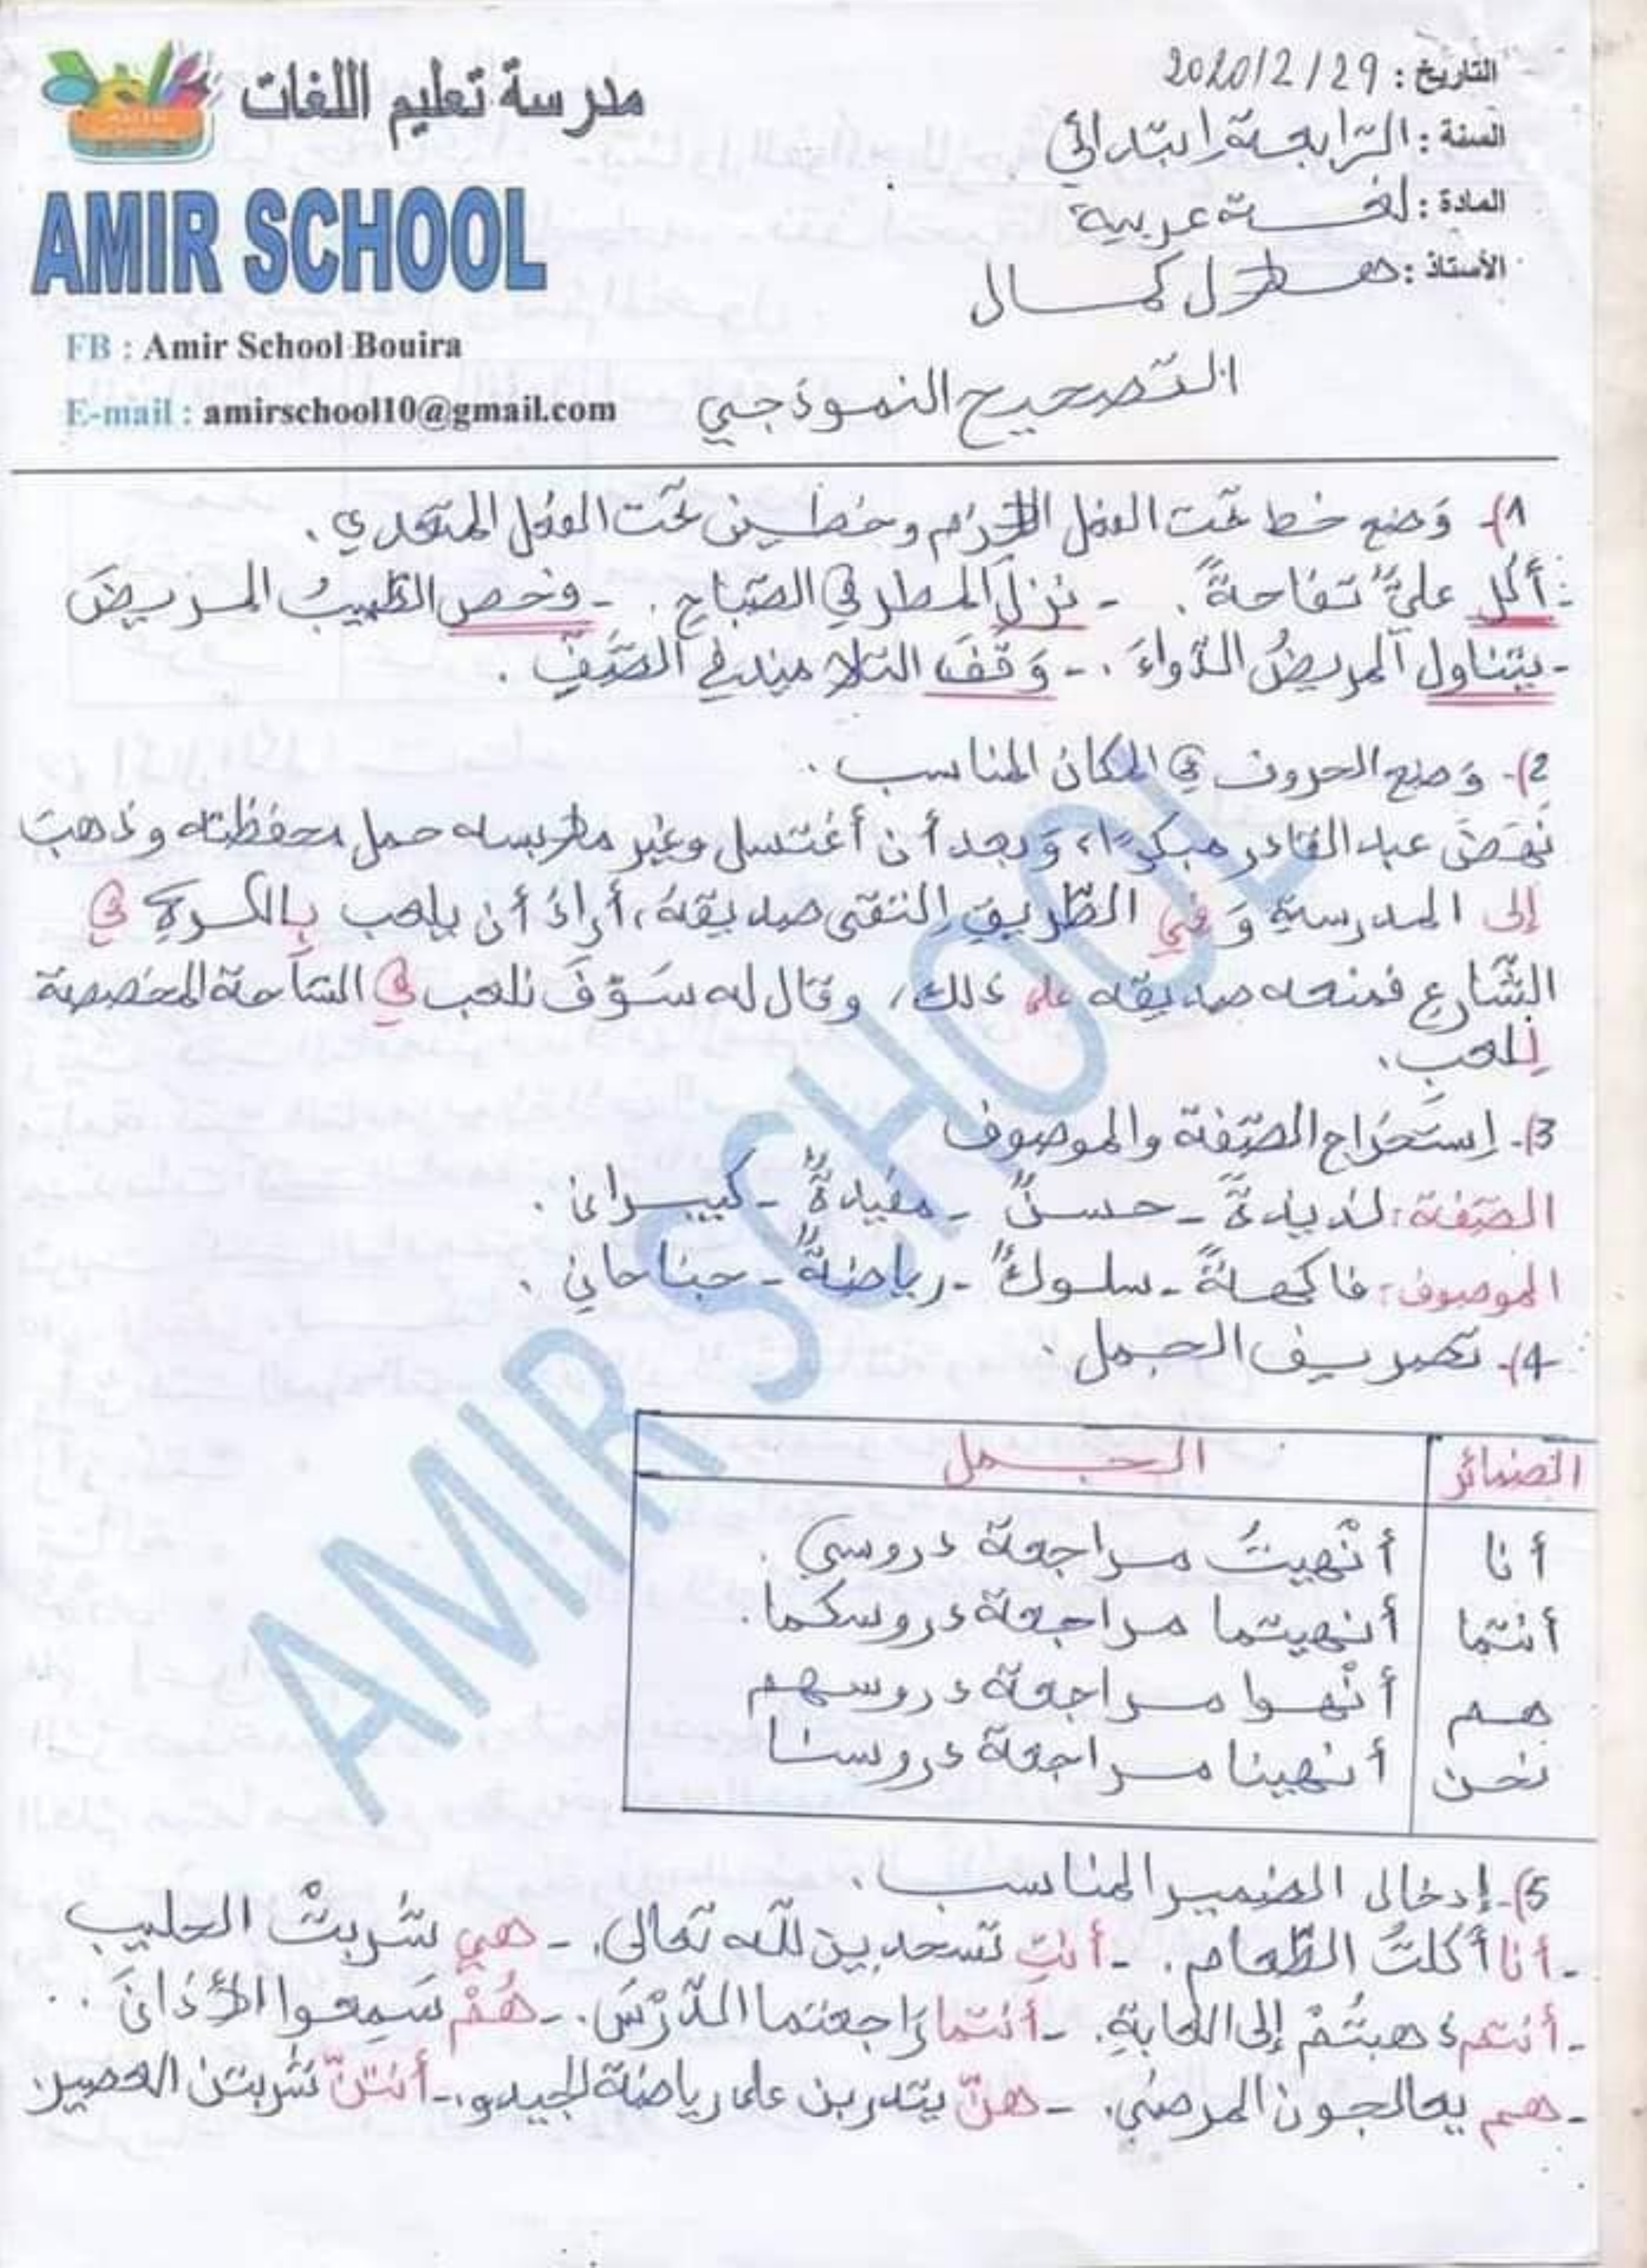 مدرسة تعليم اللغات
AMIR SCHOOL
FB : Amir School Bouira
E-mail : amirschool10@gmail.com
التاريخ : 2020/2/29
السنة : الرّابعة إبتدائي
المادة : لغة عربية
الأستاذ : كمال
التّصحيح النموذجي
1)- وَضع خط تحت الفعل اللازم وخطين تحت الفعل المتعدي.
- أكل عليٌّ تفاحةً. - نزلَ المطر في الصّباحِ. - فحص الطّبيبُ المريضَ
- يتناول المريضُ الدّواءَ. - وَقفَ التلاميذ في الصّفِّ.
2)- وَضع الحروف في المكان المناسب.
نهضَ عبد القادر مبكرًا، وَبعد أن أغتسل وغير ملابسه حمل محفظته وذهبَ
إلى المدرسةِ وَ في الطّريقِ إلتقى صديقهُ، أرادَ أن يلعب بالكرةِ في
الشّارعِ فمنعه صديقه على ذلك، وقال له سَوْفَ نلعب في السّاحة المخصصة
لِلعبِ.
3)- إستخراج الصّفة والموصوف
الصّفة: لذيذةً - حسنٌ - مفيدةٌ - كبيران.
الموصوف: فاكهةً - سلوكٌ - رياضةٌ - جناحانِ.
4)- تصريف الجمل.
الضمائر الجمل
أنا أنْهيتُ مراجعة دروسي.
أنتما أنهيتما مراجعة دروسكما.
هم أنْهوا مراجعة دروسهم
نحن أنهينا مراجعة دروسنا
5)- إدخال الضمير المناسب.
- أنا أكلتُ الطّعام. - أنتِ تسجدين للّه تعالى. - هي شربتْ الحليب
- أنتم ذهبتُمْ إلى الغابةِ. - أنتما رَاجعتما الدّرْسَ. - هُمْ سَمِعوا الأذانَ..
- هم يعالجون المرضى. - هنّ يتدربن على رياضة الجيدو. - أنتنّ شربتن العصير.
AMIR SCHOOL